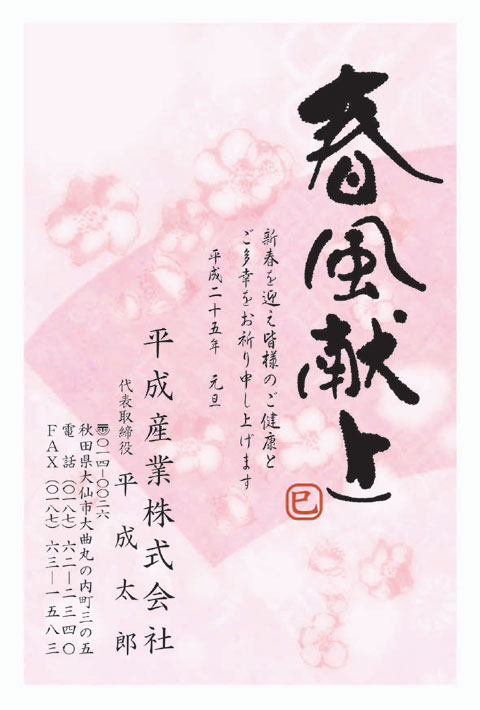 春風献上
巳
新春を迎え皆様のご健康と
ご多幸をお祈り申し上げます
平成二十五年　元旦
平成産業株式会社
代表取締役　平成太郎
〠〇一四—〇〇二六
秋田県大仙市大曲丸の内町三の五
電話（〇一八七）六二—二三四〇
ＦＡＸ（〇一八七）六三—一五八三